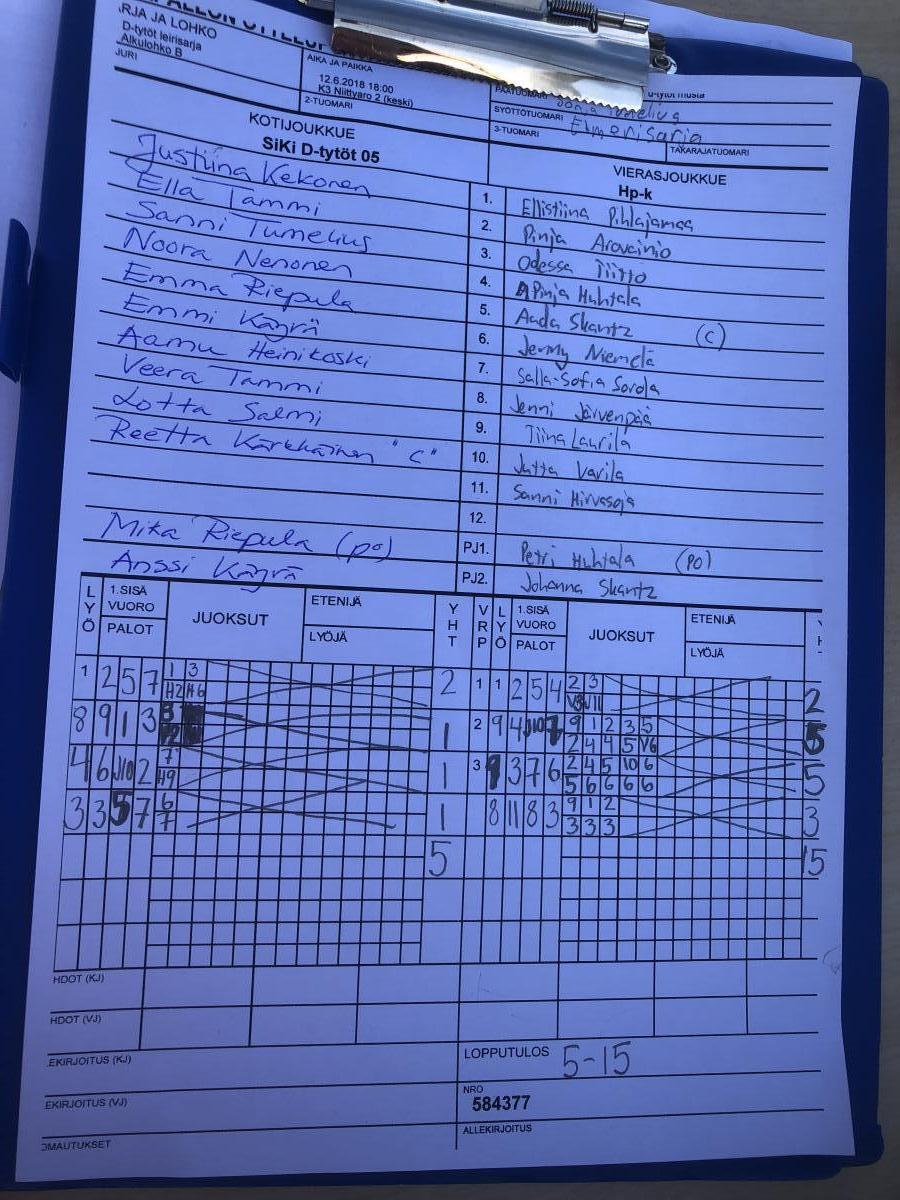 PALLON OTTELUP
RJA JA LOHKO
D-tytöt leirisarja
Alkulohko B
AIKA JA PAIKKA
12.6.2018 18:00
K3 Niittyaro 2 (keski)
PÄÄTUOMARI
d-tytöt musta
JURI
2-TUOMARI
SYÖTTÖTUOMARI
3-TUOMARI
TAKARAJATUOMARI
KOTIJOUKKUE
SiKi D-tytöt 05
VIERASJOUKKUE
Hp-k
Justiina Kekonen 1. Ellistiina Pihlajamaa
Ella Tammi 2. Pinja Arovainio
Sanni Tumelius 3. Odessa Tiitto
Noora Nenonen 4. Pinja Huhtala
Emma Riepula 5. Aada Skantz (C)
Emmi Käyrä 6. Jermy Niemelä
Aamu Heinikoski 7. Salla-Sofia Sorola
Veera Tammi 8. Jenni Järvenpää
Lotta Salmi 9. Tiina Laurila
Reetta Kärkkäinen "C" 10. Jutta Varila
11. Sanni Hirvasoja
12.
Mika Riepula (po) PJ1. Petri Huhtala (PO)
Anssi Käyrä PJ2. Johanna Skantz
LYÖ 1.SISÄ VUORO PALOT JUOKSUT ETENIJÄ LYÖJÄ YHT VRP LYÖ 1.SISÄ VUORO PALOT JUOKSUT ETENIJÄ LYÖJÄ
1 2 5 7 1 3 2 1 1 2 5 4 2 3 2
H2 H6
8 9 1 3 1 2 9 4 J10 7 9 1 2 3 5 5
2 4 4 5 V6
4 6 J10 2 7 1 3 9 3 7 6 2 4 5 10 6 5
H9 5 6 6 6 6
3 3 5 7 6 1 8 11 8 3 9 1 2 3
7 3 3 3
5 15
HDOT (KJ)
HDOT (VJ)
EKIRJOITUS (KJ)
LOPPUTULOS 5-15
EKIRJOITUS (VJ)
NRO
584377
OMAUTUKSET
ALLEKIRJOITUS